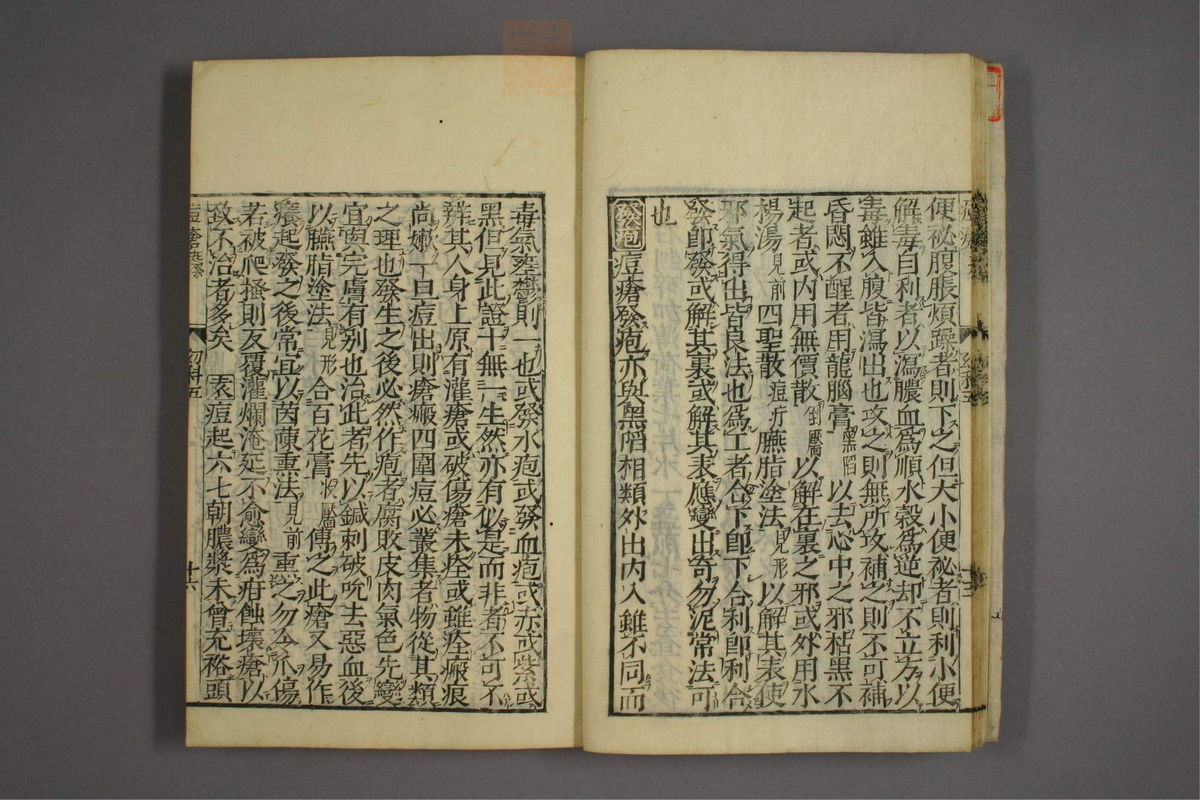 便祕腹脹煩躁者則下之但大小便祕者則利小便
解毒自利者以瀉膿血爲順水穀爲逆却不立方以
毒雖入腹皆瀉出也攻之則無所攻補之則不可補
昏悶不醒者用龍腦膏黑陷以去心中之邪枯黑不
起者或内用無價散倒靨以解在裏之邪或外用水
楊湯見前四聖散痘疔臙脂塗法見形以解其表使
邪氣得出皆良法也爲工者合下即下合利即利合
發即發或解其裏或解其表應變出奇勿泥常法可
也
發疱 痘瘡發疱亦與黑陷相類外出内入雖不同而
毒氣壅鬱則一也或發水疱或發血疱或赤或紫或
黑但見此證十無一生然亦有似是而非者不可不
辨其人身上原有灌瘡或破傷瘡未痊或雖痊瘢痕
尚嫩一旦痘出則瘡瘢四圍痘必叢集者物從其類
之理也發生之後必然作疱者腐敗皮肉氣色先變
宜與完膚有別也治此者先以鍼刺破吮去惡血後
以臙脂塗法見形合百花膏靨傅之此瘡又易作
癢起發之後常宜以茵蔯熏法見前熏之勿令爪傷
若被爬搔則反覆灌爛淹延不愈變爲疳蝕壞瘡以
致不治者多矣 痘起六七朝膿漿未曾充裕頭
幼科五
十六